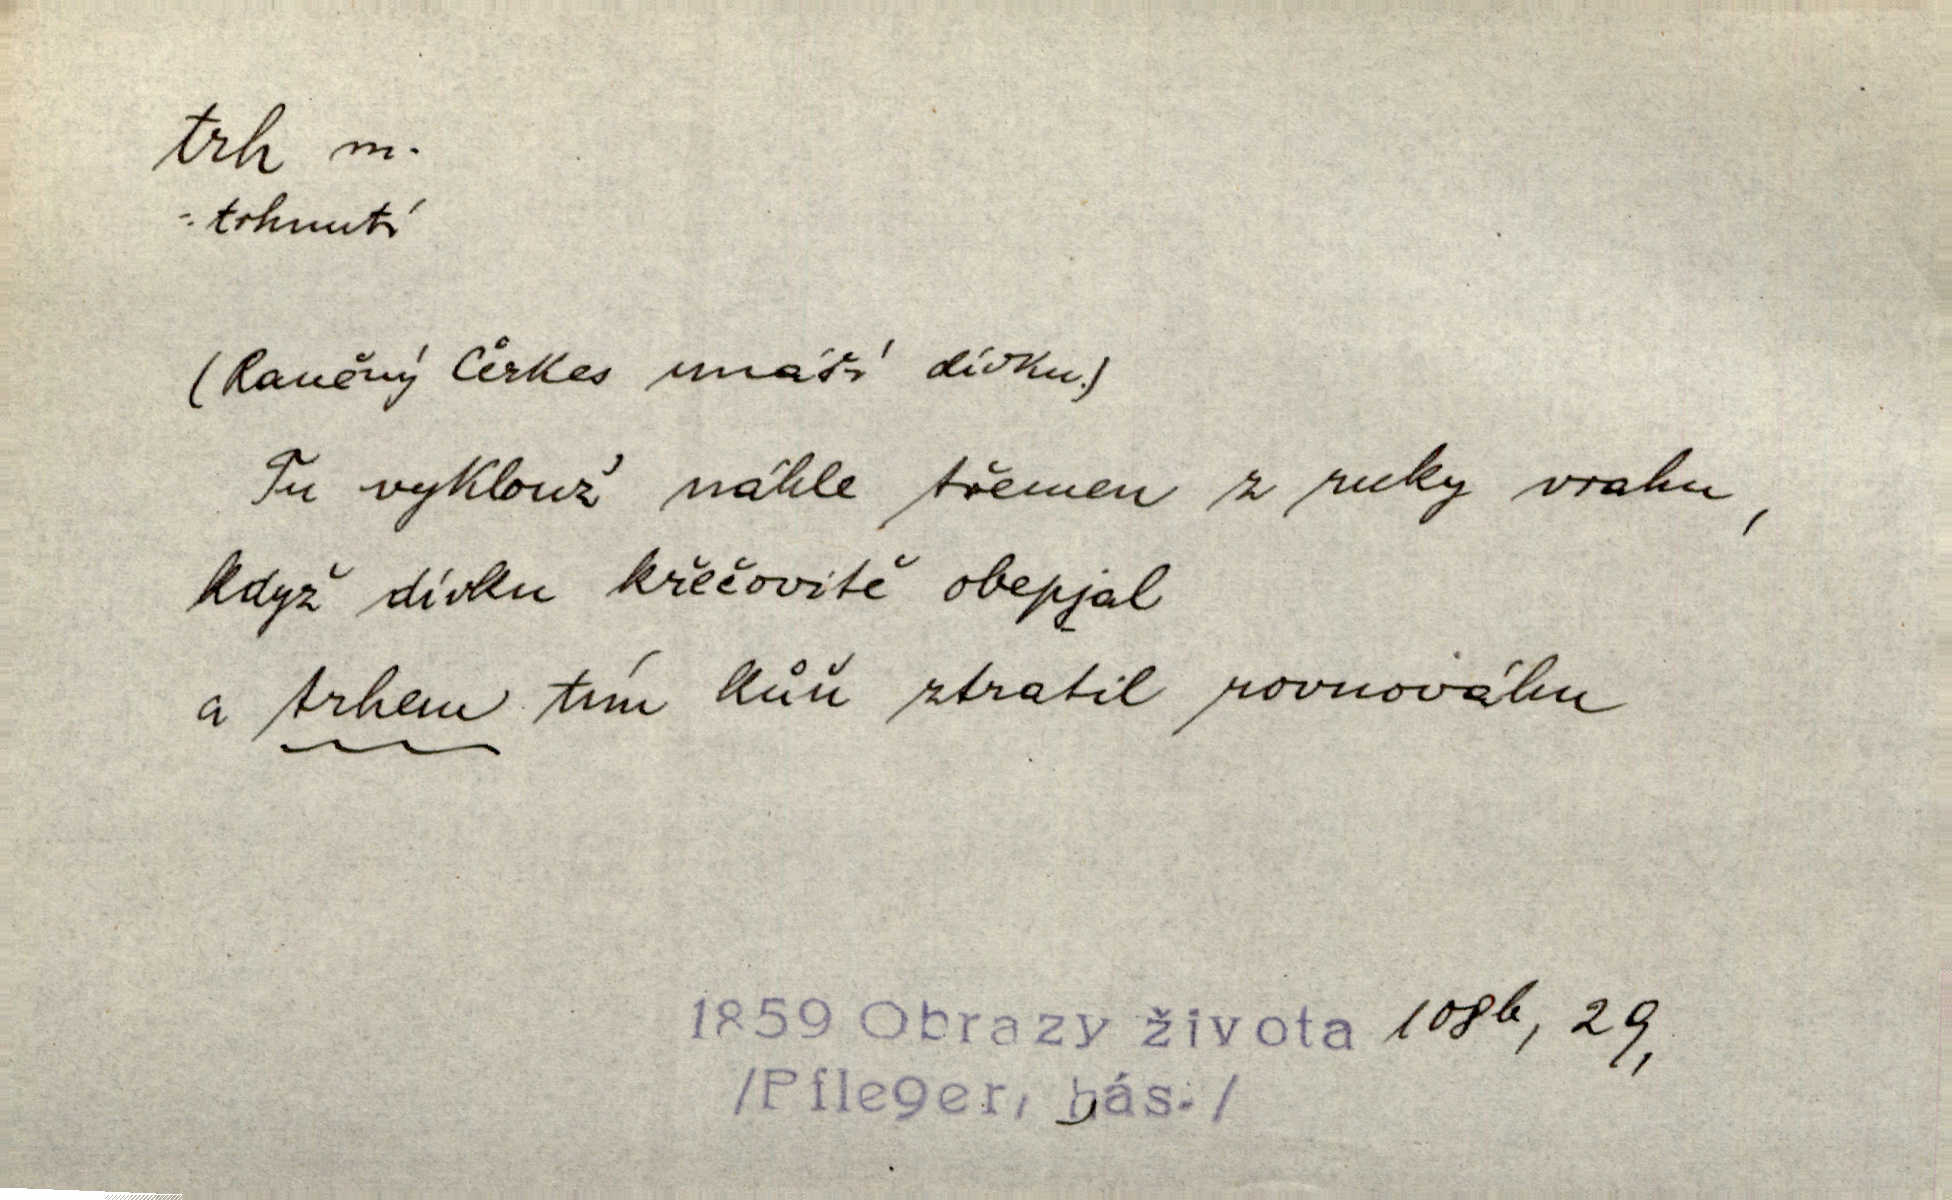 trh m.
-: trhnutí
(Raněný Čerkes unáší dívku.)
Tu vyklouz' náhle třemen z ruky vrahu,
když dívku křečovitě obepjal
a trhem tím kůň ztratil rovnováhu
1859 Obrazy života 108b, 29,
/Pfleger, bás./